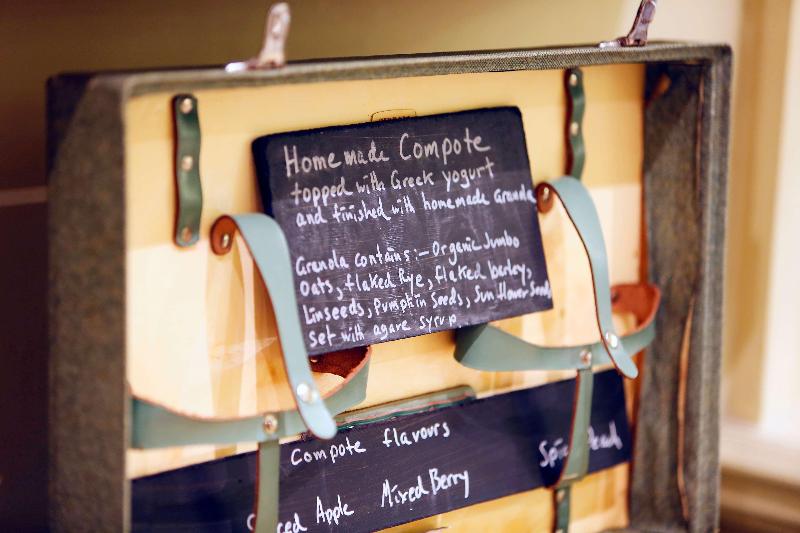 Homemade Compote
topped with Greek yogurt
and finished with homemade Granola
Granola contains:- Organic Jumbo
Oats, flaked Rye, flaked barley,
Linseeds, Pumpkin Seeds, Sunflower Seeds,
set with agave syrup
Compote flavours
Apple Mixed Berry